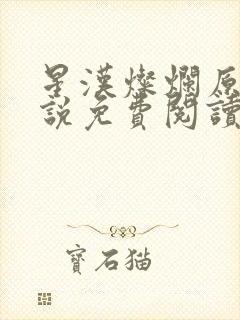 星漢燦爛原
說免費閱讀
寶石猫